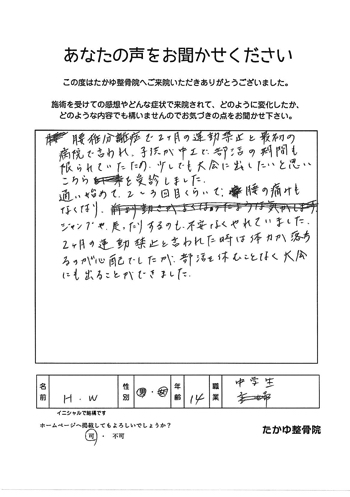 あなたの声をお聞かせください
この度はたかゆ整骨院へご来院いただきありがとうございました。
施術を受けての感想やどんな症状で来院されて、どのように変化したか、
どのような内容でも構いませんのでお気づきの点をお聞かせ下さい。
腰椎分離症で2ヶ月の運動禁止と最初の
病院で言われ、子供が中三で、部活の期間も
限られていたため、少しでも大会に出したいと思い
こちらを受診しました。
通い始めて、2、3回目くらいで、腰の痛みも
なくなり、
ジャンプや、走ったりするのも、不安なくやれていました。
2ヶ月の運動禁止と言われた時は体力が落ち
るのが心配でしたが、部活を休むことなく大会
にも出ることができました。
名前 H.W 性別 男・女 年齢 14 職業 中学生 主婦
イニシャルで結構です
ホームページへ掲載してもよろしいでしょうか?
可 ・ 不可
たかゆ整骨院